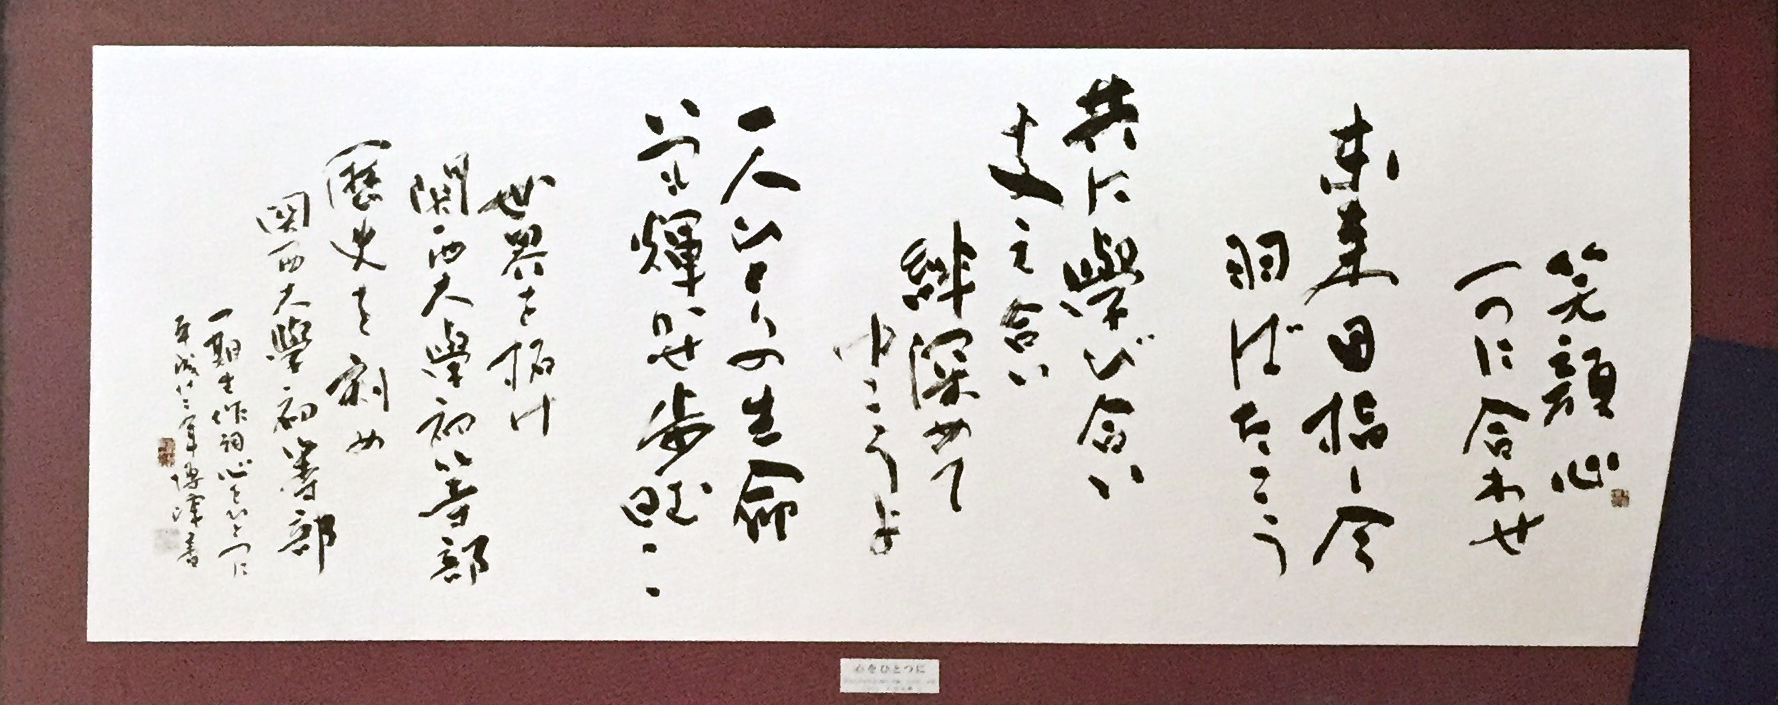 笑顔心
一つに合わせ
未来目指し今
羽ばたこう
共に學び合い
支え合い
絆深めて
ゆこうよ
一人ひとりの生命
輝かせ歩
世界を拓け
関西大學初等部
歴史を刻め
関西大學初等部
一期生作詞心をひとつに
平成廿二年 書
心をひとつに